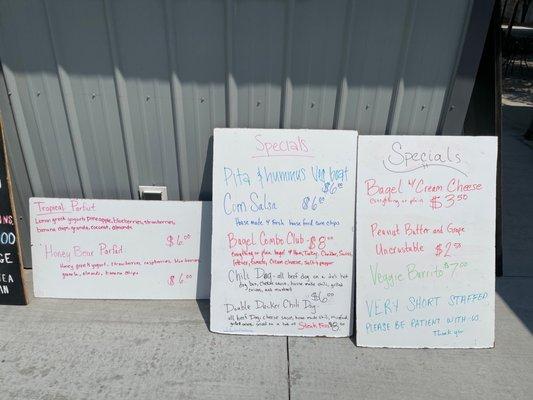 Tropical Parfait
Lemon greek yogurt, pineapple, blueberries, strawberries,
banana chips, granola, coconut, almonds
$6.00
Honey Bear Parfait
Honey greek yogurt, strawberries, raspberries, blueberries
granola, almonds, banana chips
$6.00
Specials
Pita & hummus Veg boat
$6.00
Corn Salsa $6.00
House made & fresh house fried corn chips
Bagel Combo Club $8.00
everything or plain bagel & Ham, Turkey, Cheddar, Swiss,
lettuce, tomato, cream cheese, salt & pepper
Chili Dog - all beef dog on a hot
dog bun, cheese sauce, house made chili, grilled
onions, and mustard
$6.00
Double Decker Chili Dog
all beef Dog, cheese sauce, house made chili, mustard
grilled onions Served on a bed of Steak Fries $8.00
Specials
Bagel & Cream Cheese
everything or plain $3.50
Peanut Butter and Grape
Uncrustable $2.50
Veggie Burrito $7.00
VERY SHORT STAFFED
PLEASE BE PATIENT WITH US
Thank you